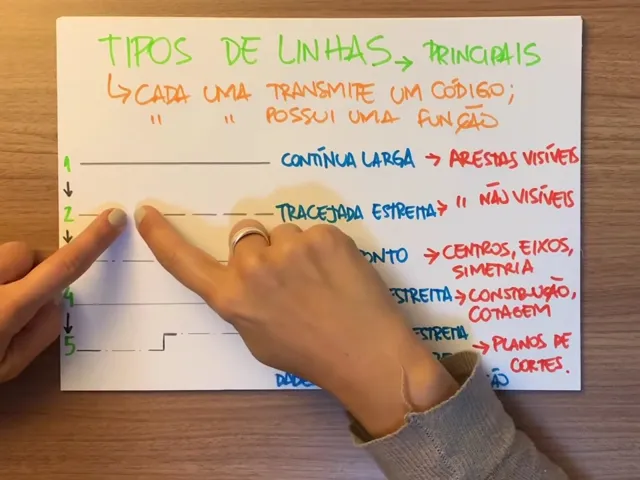 TIPOS DE LINHAS → PRINCIPAIS
↳ CADA UMA TRANSMITE UM CÓDIGO;
" " POSSUI UMA FUNÇÃO
1 CONTÍNUA LARGA → ARESTAS VISÍVEIS
2 TRACEJADA ESTREITA → " NÃO VISÍVEIS
→ CENTROS, EIXOS,
SIMETRIA
4 ESTREITA → CONSTRUÇÃO,
COTAGEM
5 ESTREITA → PLANOS DE
CORTES.